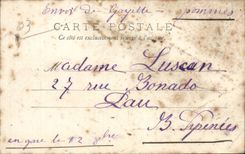 Envoi de Gayette - pommes
CARTE POSTALE
Ce côté est exclusivement
Madame Luscan
27 rue Bonado
Pau
B. Pyrénées
en gare le 12